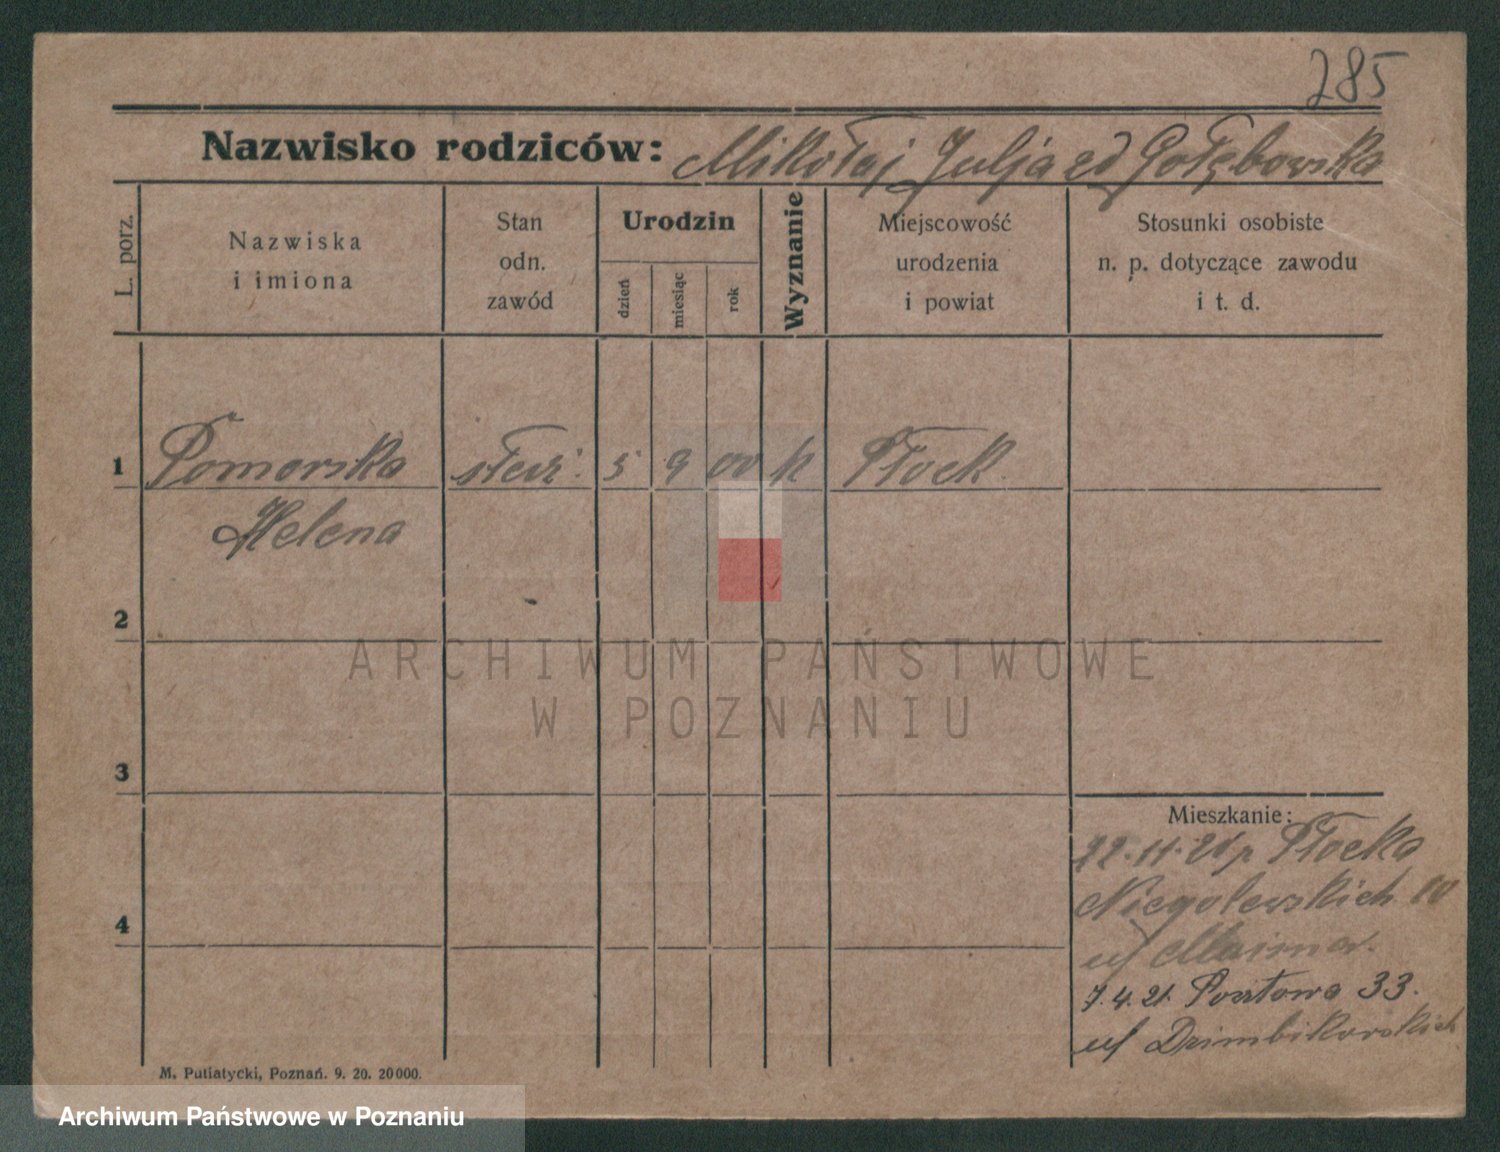 285
Nazwisko rodziców: Mikołaj Julja zd Gołębowska
L. porz.
Nazwiska
i imiona
Stan
odn.
zawód
Urodzin
dzień
miesiąc
rok
Wyznanie
Miejscowość
urodzenia
i powiat
Stosunki osobiste
n. p. dotyczące zawodu
i t. d.
1 Pomorska 5 9 00 k Płock
Helena
2
3
4
Mieszkanie:
22.11.21 p Płocka
Niegolewskich 10
7.4.21. Pocztowa 33.
M. Putiatycki, Poznań. 9. 20. 20000.
ARCHIWUM PAŃSTWOWE
W POZNANIU
Archiwum Państwowe w Poznaniu